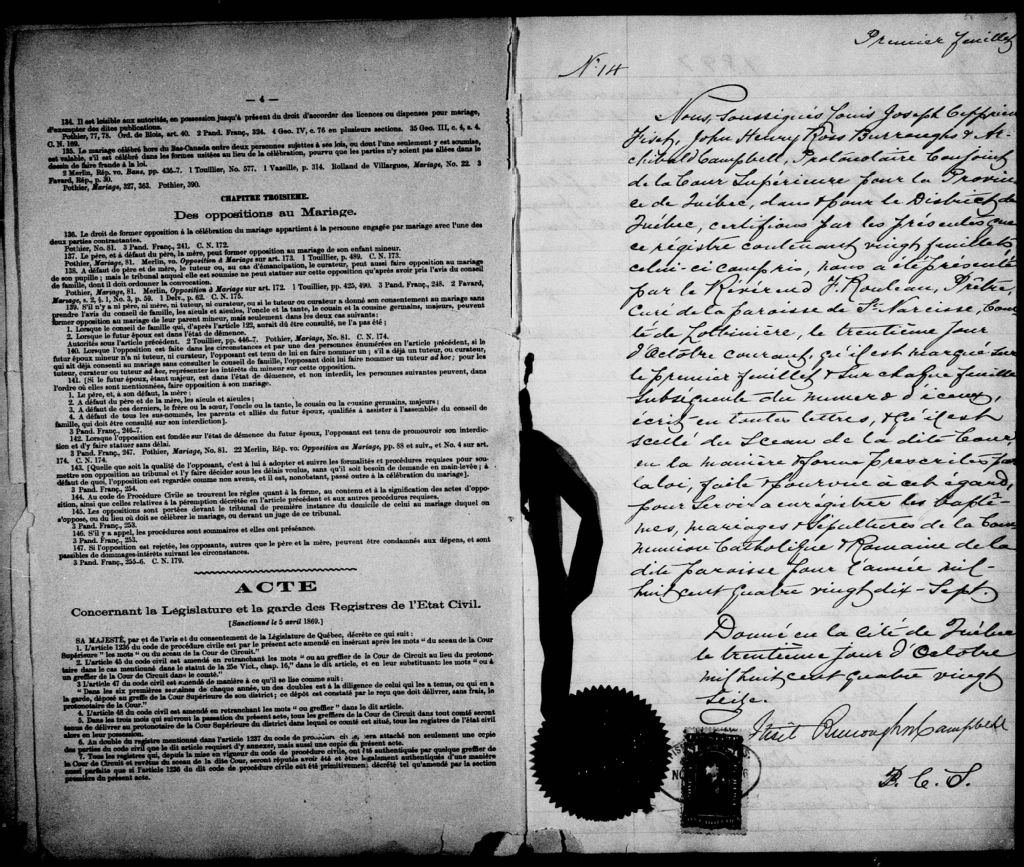 — 4 —
134. Il est loisible aux autorités, en possession jusqu'à présent du droit d'accorder des licences ou dispenses pour mariage,
d'exempter des dites publications.
Pothier, 77, 78. Ord. de Blois, art. 40. 2 Pand. Franç., 324. 4 Geo. IV, c. 76 en plusieurs sections. 35 Geo. III, c. 4, s. 4.
C. N. 169.
135. Le mariage célébré hors du Bas-Canada entre deux personnes sujettes à ses lois, ou dont l'une seulement y est soumise,
est valable, s'il est célébré dans les formes usitées au lieu de la célébration, pourvu que les parties n'y soient pas allées dans le
dessin de faire fraude à la loi.
2 Merlin, Rép. vo. Bans, pp. 436-7. 1 Touillier, No. 577. 1 Vazeille, p. 314. Rolland de Villargues, Mariage, No. 22. 3
Favard, Rép., p. 30.
Pothier, Mariage, 327, 363. Pothier, 390.
CHAPITRE TROISIEME.
Des oppositions au Mariage.
136. Le droit de former opposition à la célébration du mariage appartient à la personne engagée par mariage avec l'une des
deux parties contractantes.
Pothier, No. 81. 3 Pand. Franç., 241. C. N. 172.
137. Le père, et à défaut du père, la mère, peut former opposition au mariage de son enfant mineur.
Pothier, Mariage, 81. Merlin, vo. Opposition à Mariage sur art. 173. 1 Touillier, p. 489. C. N. 173.
138. A défaut de père et de mère, le tuteur ou, au cas d'émancipation, le curateur, peut aussi faire opposition au mariage
de son pupille ; mais le tribunal auquel elle est soumise ne peut statuer sur cette opposition qu'après avoir pris l'avis du conseil
de famille, dont il doit ordonner la convocation.
Pothier, Mariage, 81. Merlin, Opposition à Mariage sur art. 172. 1 Touillier, pp. 425, 490. 3 Pand. Franç., 248. 2 Favard,
Mariage, s. 2, § 1, No. 3, p. 59. 1 Delv., p. 62. C. N. 175.
139. S'il n'y a ni père, ni mère, ni tuteur, ni curateur, ou si le tuteur ou curateur a donné son consentement au mariage sans
prendre l'avis du conseil de famille, les aïeuls et aïeules, l'oncle et la tante, le cousin et la cousine germains, majeurs, peuvent
former opposition au mariage de leur parent mineur, mais seulement dans les deux cas suivants :
1. Lorsque le conseil de famille qui, d'après l'article 122, aurait dû être consulté, ne l'a pas été ;
2. Lorsque le futur époux est dans l'état de démence.
Autorités sous l'article précédent. 2 Touillier, pp. 446-7. Pothier, Mariage, No. 81. C. N. 174.
140. Lorsque l'opposition est faite dans les circonstances et par une des personnes énumérées en l'article précédent, si le
futur époux mineur n'a ni tuteur, ni curateur, l'opposant est tenu de lui en faire nommer un ; s'il a déjà un tuteur, ou curateur,
qui ait déjà consenti au mariage sans consulter le conseil de famille, l'opposant doit lui faire nommer un tuteur ad hoc ; pour les
tuteur, curateur ou tuteur ad hoc, représenter les intérêts du mineur sur cette opposition.
141. [Si le futur époux, étant majeur, est dans l'état de démence, et non interdit, les personnes suivantes peuvent, dans
l'ordre où elles sont mentionnées, faire opposition à son mariage.
1. Le père, et, à son défaut, la mère ;
2. A défaut du père et de la mère, les aïeuls et aïeules ;
3. A défaut de ces derniers, le frère ou la sœur, l'oncle ou la tante, le cousin ou la cousine germains, majeurs ;
4. A défaut de tous les sus-nommés, les parents et alliés du futur époux, qualifiés à assister à l'assemblée du conseil de
famille, qui doit être consulté sur son interdiction].
3 Pand. Franç., 246-7.
142. Lorsque l'opposition est fondée sur l'état de démence du futur époux, l'opposant est tenu de promouvoir son interdic-
tion et d'y faire statuer sans délai.
3 Pand. Franç., 247. Pothier, Mariage, No. 81. 22 Merlin, Rép. vo. Opposition au Mariage, pp 88 et suiv., et No. 4 sur art.
174. C. N. 174.
143. [Quelle que soit la qualité de l'opposant, c'est à lui à adopter et suivre les formalités et procédures requises pour sou-
mettre son opposition au tribunal et l'y faire décider sous les délais voulus, sans qu'il soit besoin de demande en main-levée ; à
défaut de quoi, l'opposition est regardée comme non avenu, et il est, nonobstant, passé outre à la célébration du mariage].
3 Pand. Franç. 254.
144. Au code de Procédure Civile se trouvent les règles quant à la forme, au contenu et à la signification des actes d'oppo-
sition, ainsi que celles relatives à la péremption décrétée en l'article précédent et aux autres procédures requises.
145. Les oppositions sont portées devant le tribunal de première instance du domicile de celui au mariage duquel on
s'oppose, ou du lieu où doit se célébrer le mariage, ou devant un juge de ce tribunal.
3 Pand. Franç., 253.
146. S'il y a appel, les procédures sont sommaires et elles ont préséance.
3 Pand. Franç., 253.
147. Si l'opposition est rejetée, les opposants, autres que le père et la mère, peuvent être condamnés aux dépens, et sont
passibles de dommages-intérêts suivant les circonstances.
3 Pand. Franç., 255-6. C. N. 179.
ACTE
Concernant la Législature et la garde des Registres de l'Etat Civil.
[Sanctionné le 5 avril 1869.]
SA MAJESTÉ, par et de l'avis et du consentement de la Législature de Québec, décrète ce qui suit :
1. L'article 1236 du code de procédure civile est par le présent acte amendé en insérant après les mots " du sceau de la Cour
Supérieure " les mots " ou du sceau de la Cour de Circuit."
2. L'article 45 du code civil est amendé en retranchant les mots " ou au greffier de la Cour de Circuit au lieu du protono-
taire dans le cas mentionné dans le statut de la 25e Vict., chap. 16," dans le dit article, et en leur substituant les mots " ou à
un greffier de la Cour de Circuit dans le comté."
3 L'article 47 du code civil est amendé de manière à ce qu'il se lise comme suit :
" Dans les six premières semaines de chaque année, un des doubles est à la diligence de celui qui les a tenus, ou qui en a
la garde, déposé au greffe de la Cour Supérieure de son district ; ce dépôt est constaté par le reçu que doit délivrer, sans frais, le
protonotaire de la Cour."
4. L'article 48 du code civil est amendé en retranchant les mots " ou greffier " dans le dit article.
5. Dans les trois mois qui suivront la passation du présent acte, tous les greffiers de la Cour de Circuit dans tout comté seront
tenus de délivrer au protonotaire de la Cour Supérieure du district dans lequel ce comté est situé, tous les registres de l'état civil
alors en leur possession.
6. Au double du registre mentionné dans l'article 1237 du code de procédure civile, sera attaché non seulement une copie
des parties du code civil que le dit article requiert d'y annexer, mais aussi une copie du présent acte.
7. Tous les registres qui, depuis la mise en vigueur du code de procédure civile, ont été authentiqués par quelque greffier de
la Cour de Circuit et revêtus du sceau de la dite Cour, seront réputés avoir été et être légalement authentiqués d'une manière
aussi parfaite que si l'article 1236 du dit code de procédure civile eût été primitivement décrété tel qu'amendé par la section
première du présent acte.
Premier feuillet
No. 14
Nous, soussignés Louis Joseph Cyprien
Fiset, John Henry Ross Burroughs & Ar-
chibald Campbell, Protonotaire Conjoint
de la Cour Supérieure pour la Provin-
ce de Québec, dans & pour le District de
Québec, certifions par les présentes que
ce registre contenant vingt feuillets
celui-ci compris, nous a été présenté
par le Révérend F. Rouleau, Prêtre,
Curé de la paroisse de St. Narcisse, Com-
té de Lotbinière, le trentième jour
d'Octobre courant, qu'il est marqué sur
le premier feuillet & sur chaque feuillet
subséquent du numéro d'iceux,
écrit en toutes lettres, & qu'il est
scellé du Sceau de la dite Cour,
en la manière & forme prescrites par
la loi, faite & pourvue à cet égard,
pour servir à enregistrer les baptê-
mes, mariages & sépultures de la Com-
munion Catholique & Romaine de la
dite paroisse pour l'année mil-
huit cent quatre vingt dix-sept.
Donné en la cité de Québec
le trentième jour d'Octobre
mil huit cent quatre vingt
seize.
Fiset Burroughs & Campbell
P. C. S.